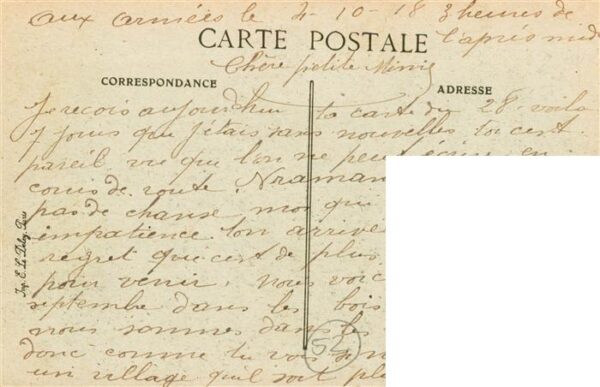 aux armées le 4-10-18 3 heures de
l'après midi
CARTE POSTALE
Chère petite Mimie
CORRESPONDANCE
ADRESSE
Je reçois aujourdhui ta carte du 28. voila
7 jours que j'étais sans nouvelles toi cest
pareil vu que l'on ne peut écrire en
cours de route.
pas de chanse moi qui
impatience ton arrivé
regret que cest de plus
pour venir. nous voic
septembre dans les bois
nous sommes dans les
donc comme tu vois
un village qu'il soit pl
Imp. E. Le Deley, Paris
52